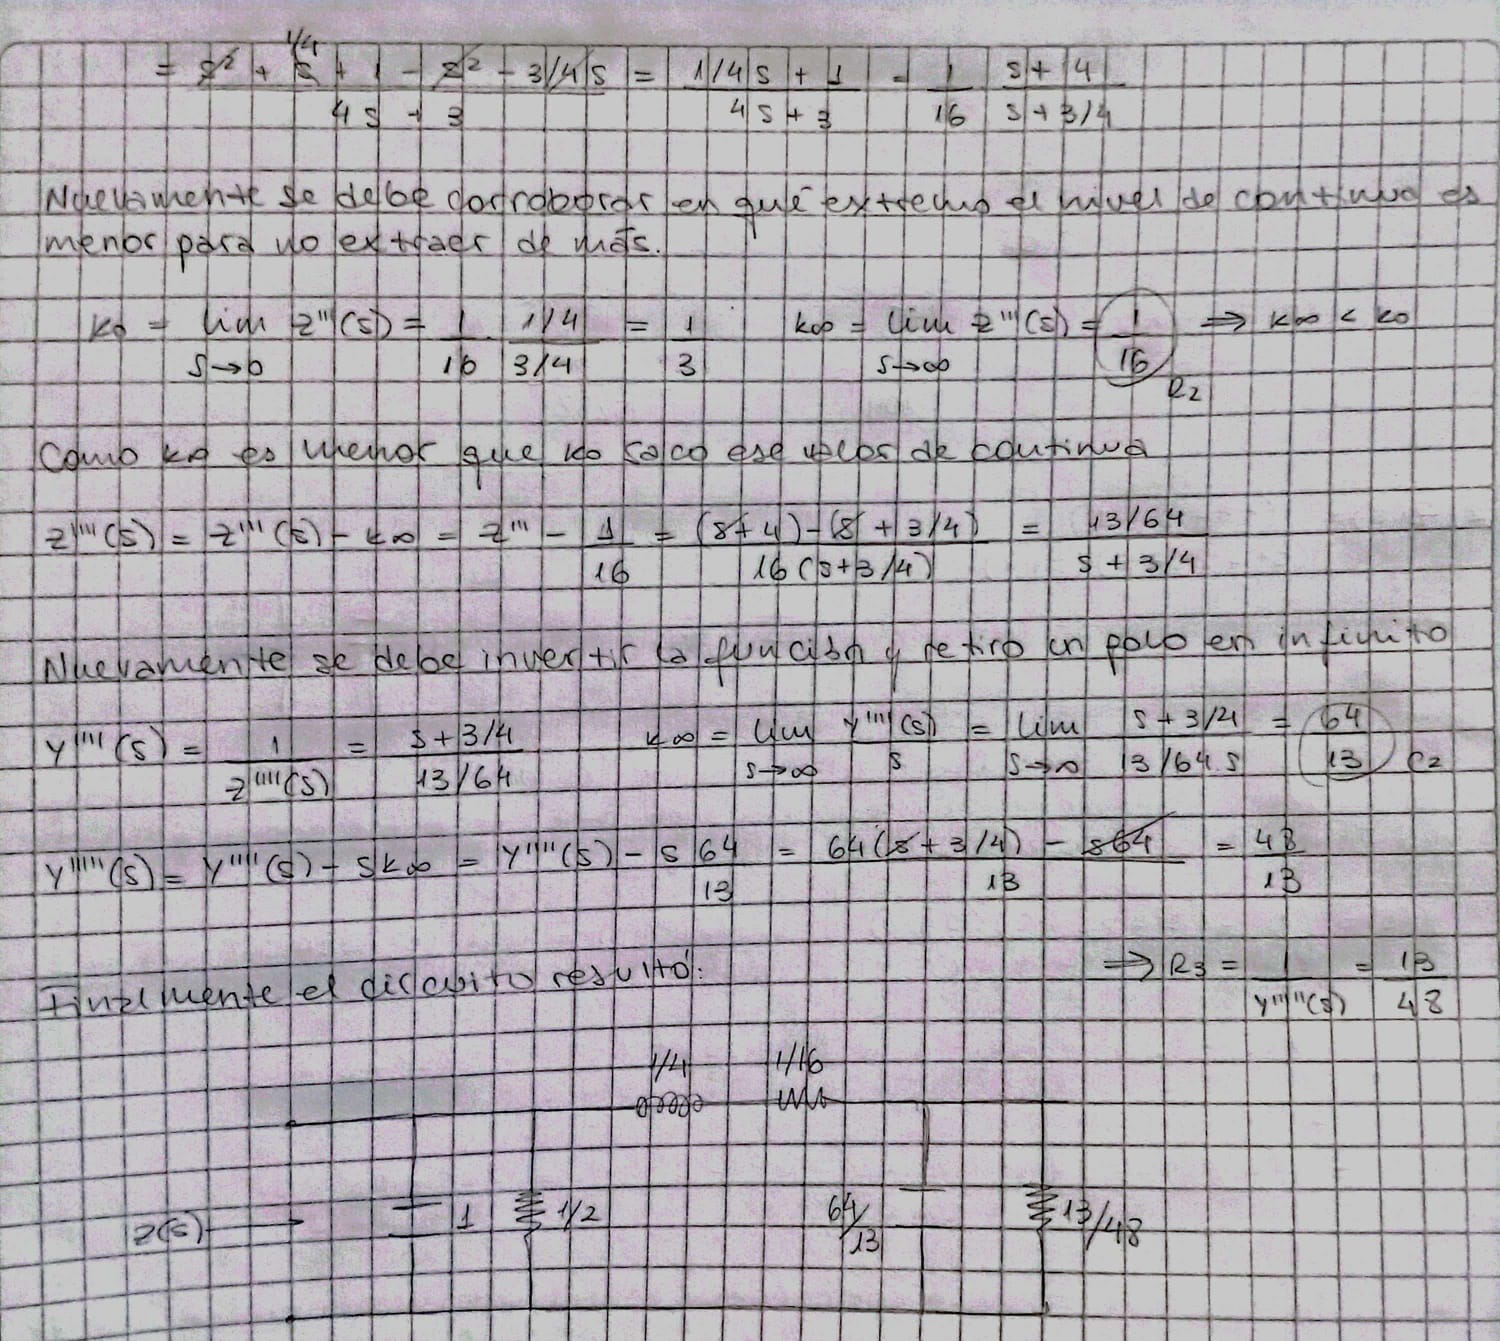 = s² + s 1/4 + 1 - s² - 3/4 s / 4s + 3 = 1/4 s + 1 / 4s + 3 = 1/16 s + 4 / s + 3/4
Nuevamente se debe corroborar en qué extremo el nivel de continua es
menor para no extraer de más.
k0 = lim s→0 Z'''(s) = 1/16 1/4 / 3/4 = 1/3 k∞ = lim s→∞ Z'''(s) = 1/16 R2 ⇒ k∞ < k0
Como k∞ es menor que k0 saco ese valor de continua
Z''''(s) = Z'''(s) - k∞ = Z''' - 1/16 = (s + 4) - (s + 3/4) / 16(s + 3/4) = 13/64 / s + 3/4
Nuevamente se debe invertir la función y retiro un polo en infinito
Y''''(s) = 1 / Z''''(s) = s + 3/4 / 13/64 k∞ = lim s→∞ Y''''(s) / s = lim s→∞ s + 3/4 / 13/64 . s = 64/13 C2
Y'''''(s) = Y''''(s) - s k∞ = Y''''(s) - s 64/13 = 64(s + 3/4) - s64 / 13 = 48/13
Finalmente el circuito resultó: ⇒ R3 = 1 / Y'''''(s) = 13/48
1/4 1/16
Z(s) → 1 1/2 64/13 13/48